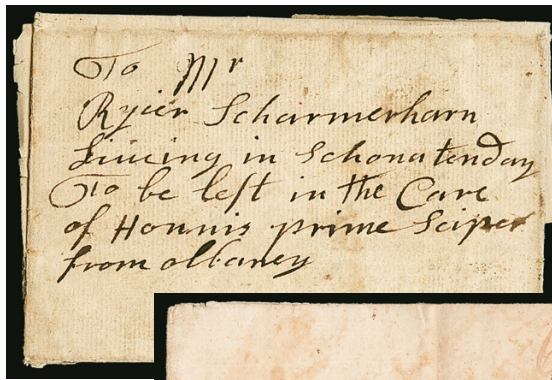 To Mr
Ryier Scharmerharn
Liucing in Schonatenday
To be left in the Care
of Honnis prime Sciper
from olbaney